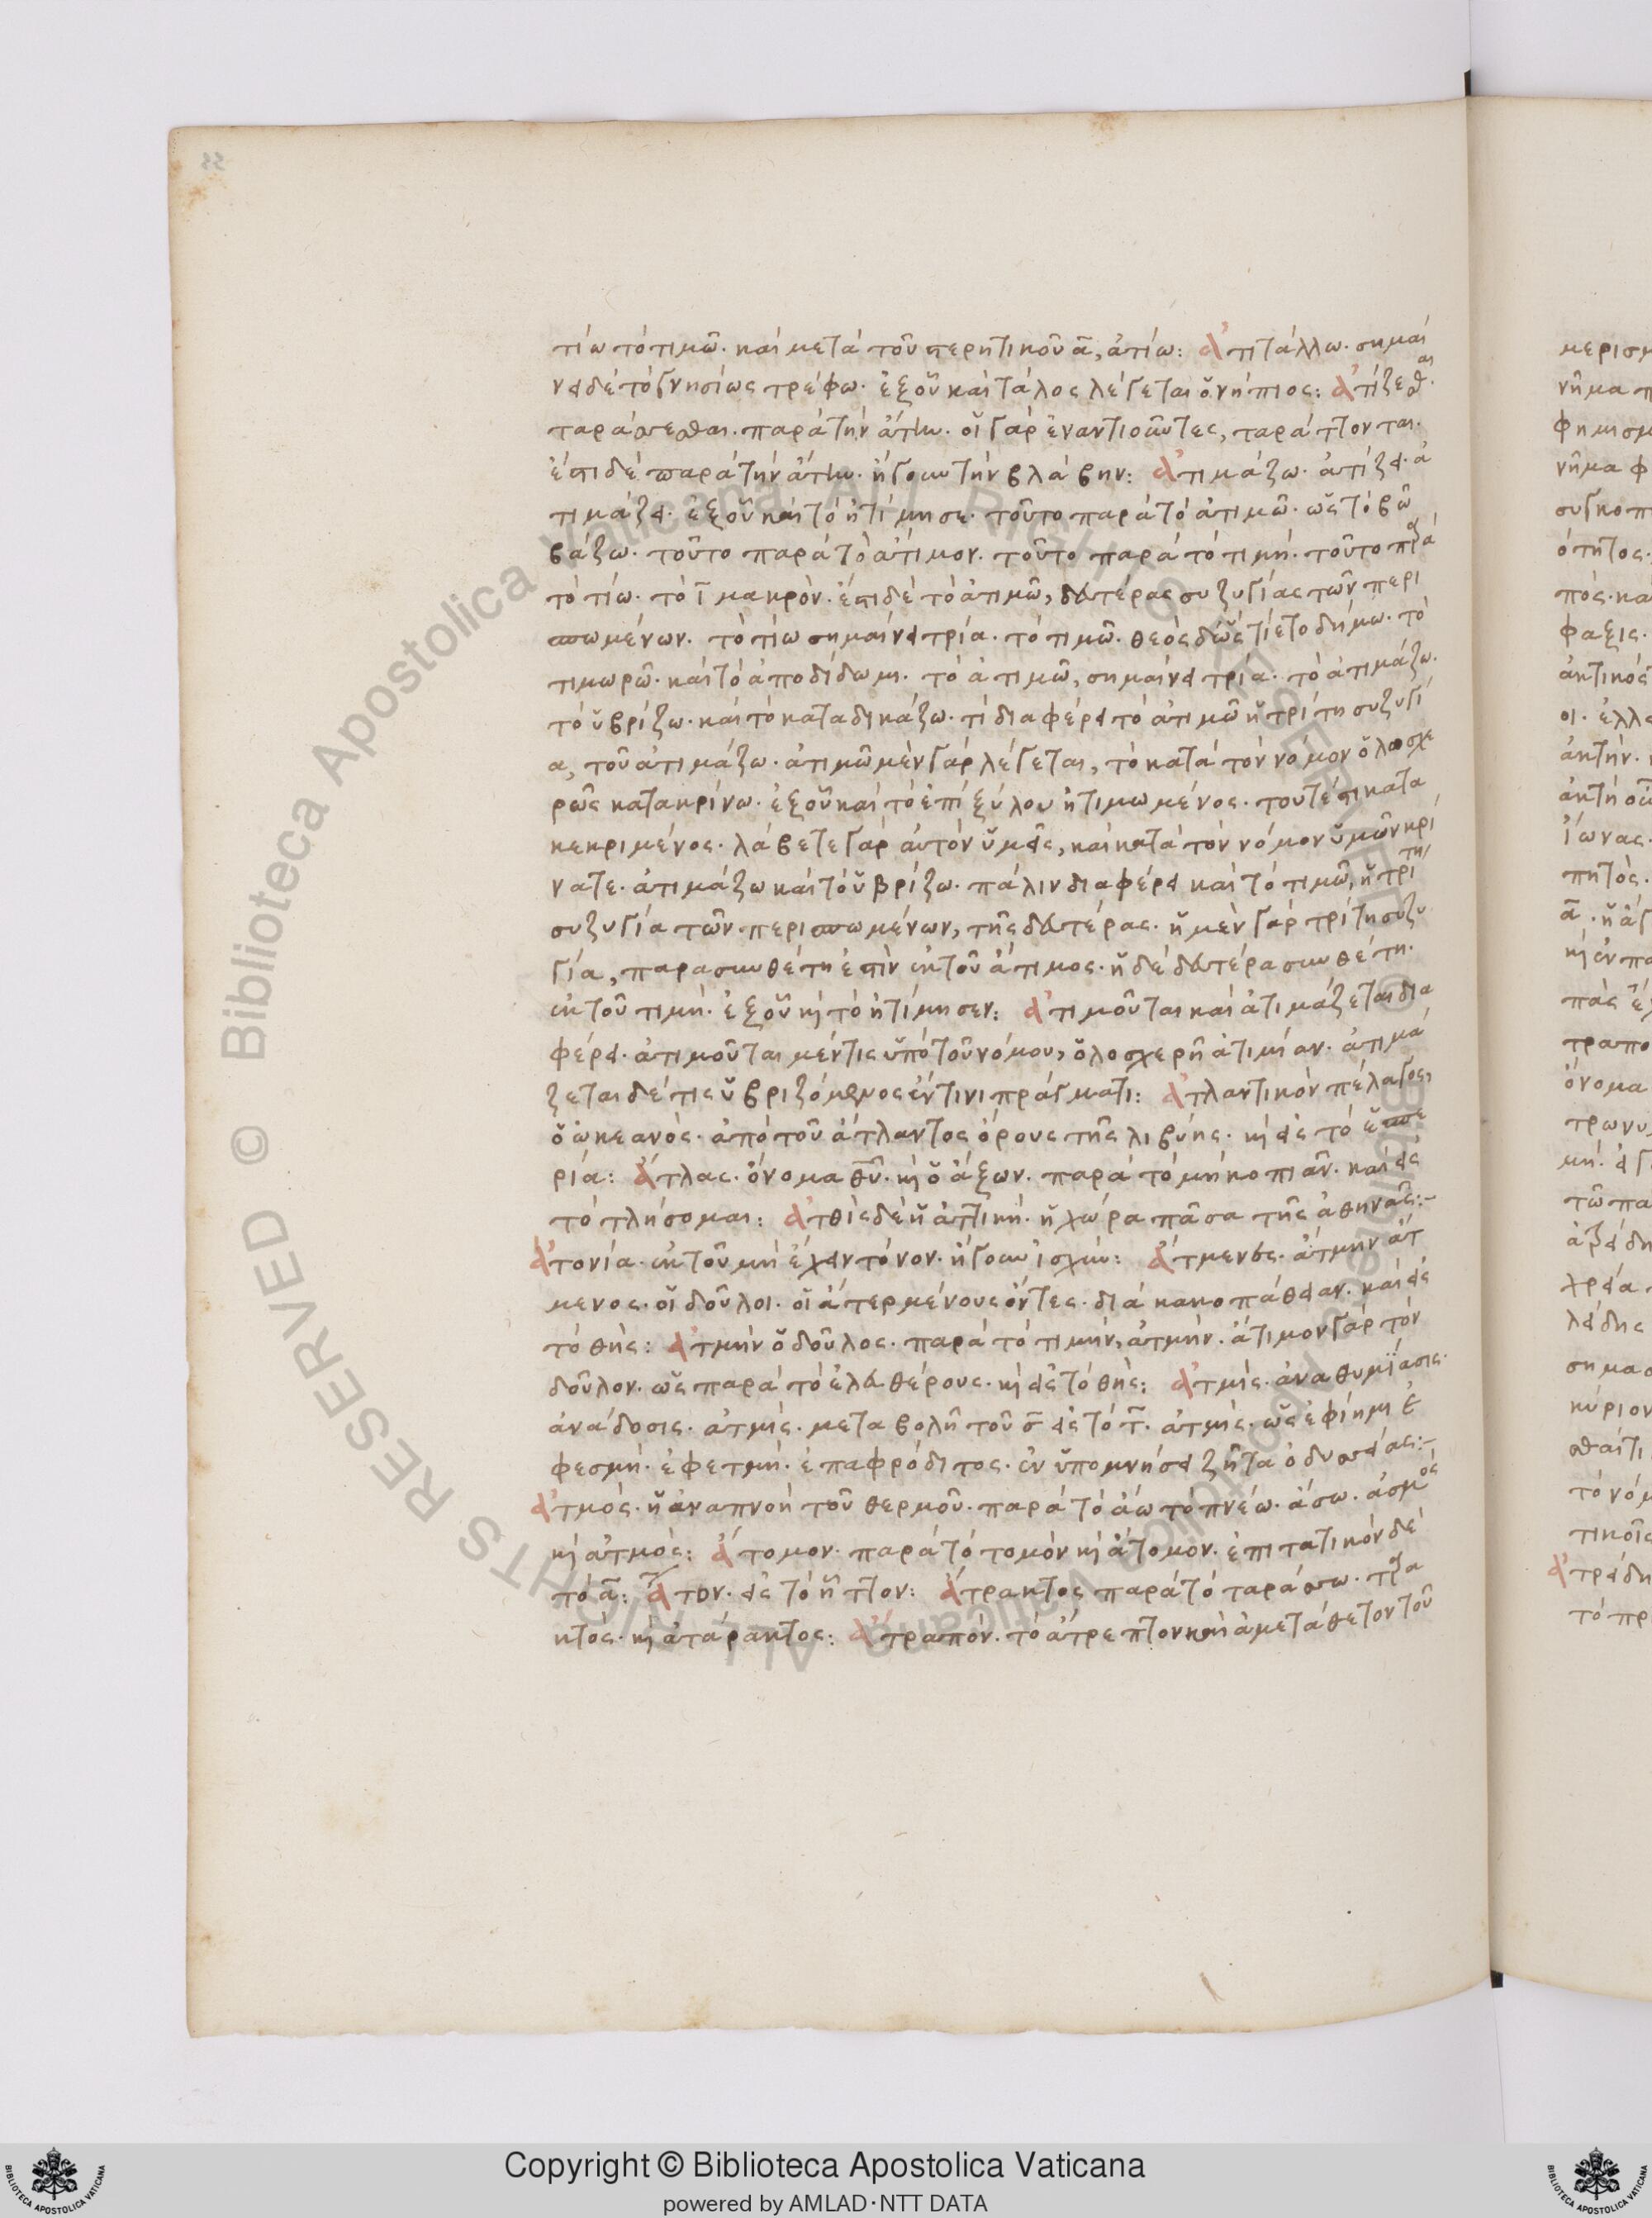 τίω τὸ τιμῶ· καὶ μετὰ τοῦ στερητικοῦ ᾱ, ἀτίω: Ἀτιτάλλω· σημαί
νει δὲ τὸ γνησίως τρέφω· ἐξ οὗ καὶ τάλος λέγεται ὁ νήπιος: Ἀτίζεσθαι·
ταράσσεσθαι· παρὰ τὴν ἄτην· οἱ γὰρ ἐναντιοῦντες, ταράττονται·
ἔστι δὲ παρὰ τὴν ἄτην· ἤγουν τὴν βλάβην: Ἀτιμάζω· ἀτίζει· ἀ
τιμάζει· ἐξ οὗ καὶ τὸ ἠτίμησε· τοῦτο παρὰ τὸ ἀτιμῶ· ὡς τὸ βῶ
βάζω· τοῦτο παρὰ τὸ ἄτιμον· τοῦτο παρὰ τὸ τιμή· τοῦτο παρὰ
τὸ τίω· τὸ ῑ μακρὸν· ἔστι δὲ τὸ ἀτιμῶ, δευτέρας συζυγίας τῶν περι
σπωμένων· τὸ τίω σημαίνει τρία· τὸ τιμῶ· θεὸς δ' ὣς τίετο δήμω· τὸ
τιμωρῶ· καὶ τὸ ἀποδίδωμι· τὸ ἀτιμῶ, σημαίνει τρία· τὸ ἀτιμάζω·
τὸ ὑβρίζω· καὶ τὸ καταδικάζω· τί διαφέρει τὸ ἀτιμῶ ἡ τρίτη συζυγί
α, τοῦ ἀτιμάζω· ἀτιμῶ μὲν γὰρ λέγεται, τὸ κατὰ τὸν νόμον ὁλοσχε
ρῶς κατακρίνω· ἐξ οὗ καὶ τὸ ἐπὶ ξύλου ἠτιμωμένος· τουτέστι κατα
κεκριμένος· λάβετε γὰρ αὐτὸν ὑμεῖς, καὶ κατὰ τὸν νόμον ὑμῶν κρί
νατε· ἀτιμάζω καὶ τὸ ὑβρίζω· πάλιν διαφέρει καὶ τὸ τιμῶ, ἡ τρίτη
συζυγία τῶν περισπωμένων, τῆς δευτέρας· ἡ μὲν γὰρ τρίτη συζυ
γία, παρασυνθέτη ἐστὶν ἐκ τοῦ ἄτιμος· ἡ δὲ δευτέρα συνθέτη·
ἐκ τοῦ τιμή· ἐξ οὗ καὶ τὸ ἠτίμησεν: Ἀτιμοῦται καὶ ἀτιμάζεται δια
φέρει· ἀτιμοῦται μέν τις ὑπὸ τοῦ νόμου, ὁλοσχερῆ ἀτιμίαν· ἀτιμά
ζεται δέ τις ὑβριζόμενος ἔν τινι πράγματι: Ἀτλαντικὸν πέλαγος,
ὁ ὠκεανός· ἀπὸ τοῦ ἄτλαντος ὄρους τῆς λιβύης· καὶ εἰς τὸ ἑσπε
ρία: Ἄτλας· ὄνομα θῦ· καὶ ὁ ἄξων· παρὰ τὸ μὴ κοπιᾶν· καὶ εἰς
τὸ τλήσομαι: Ἀτθὶς δὲ ἡ ἀττικὴ· ἡ χώρα πᾶσα τῆς ἀθηνᾶς:-
Ἀτονία· ἐκ τοῦ μὴ ἔχειν τόνον· ἤγουν ἰσχύν: Ἄτμενες· ἄτμην ἄτ
μενος· οἱ δοῦλοι· οἱ ἀτερμένους ὄντες· διὰ κακοπάθειαν· καὶ εἰς
τὸ θής: Ἀτμὴν ὁ δοῦλος· παρὰ τὸ τιμήν, ἀτμήν· ἄτιμον γὰρ τὸν
δοῦλον· ὡς παρὰ τὸ ἐλευθέρους· καὶ εἰς τὸ θής: Ἀτμίς· ἀναθυμΐασις·
ἀνάδοσις· ἀτμίς· μεταβολῆ τοῦ σ̄ εἰς τὸ τ̄· ἀτμίς· ὡς ἐφίημι ἐ
φεσμή· ἐφετμή· ἐπαφρόδιτος· ἐν ὑπομνήσει ζῆτα ὀδυσσείας:-
Ἀτμός· ἡ ἀναπνοὴ τοῦ θερμοῦ· παρὰ τὸ ἄω τὸ πνέω· ἄσω· ἀσμός
καὶ ἀτμός: Ἄτομον· παρὰ τὸ τομὸν καὶ ἄτομον· ἐπιτατικὸν δὲ
τὸ ᾱ: Ἄττον· εἰς τὸ ἧττον: Ἄτρακτος παρὰ τὸ ταράσσω· τρα
κτός· καὶ ἀτάρακτος: Ἄτραπόν· τὸ ἄτρεπτον καὶ ἀμετάθετον τοῦ
Copyright © Biblioteca Apostolica Vaticana
powered by AMLAD·NTT DATA